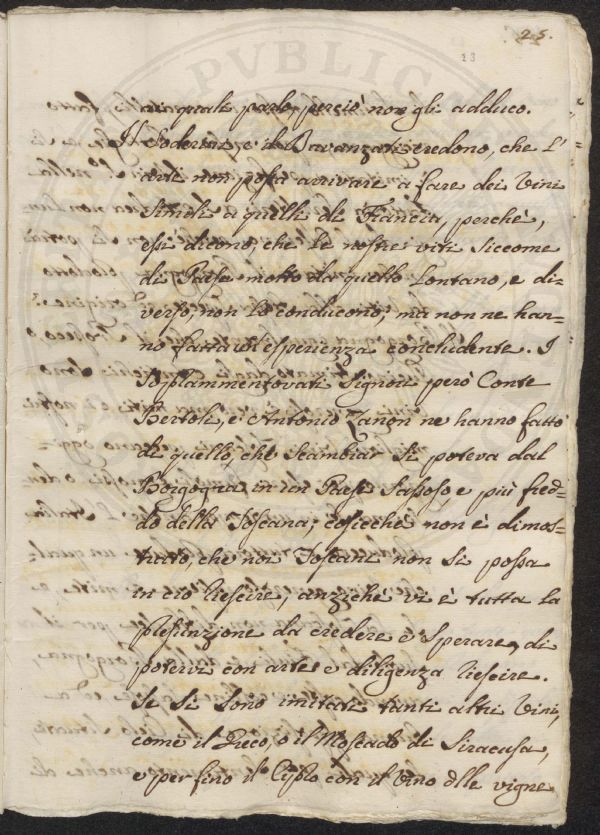 25.
13
quali parlo, perciò non gli adduco.
Il Soderini, e il Davanzati credono, che l'
arte non possa arrivare a fare dei Vini
simili a quelli di Francia, perchè,
essi dicono, che le nostre viti siccome
di Paese molto da quello lontano, e di-
verso, non lo conducono; ma non ne han-
no fatta un'esperienza concludente. I
soprammentovati Signori però Conte
Bertoli, e Antonio Zanon ne hanno fatto
di quello, che scambiar si poteva dal
Borgogna in un Paese sassoso e più fred-
do della Toscana; cosicchè non è dimos-
trato, che noi Toscani non si possa
in ciò riescire, anzichè vi è tutta la
presunzione da credere e sperare, di
potervi con arte e diligenza riescire.
Se si sono imitati tanti altri Vini,
come il Greco, o il Moscado di Siracusa,
e per fino il Cipro con il Vino dlle vigne